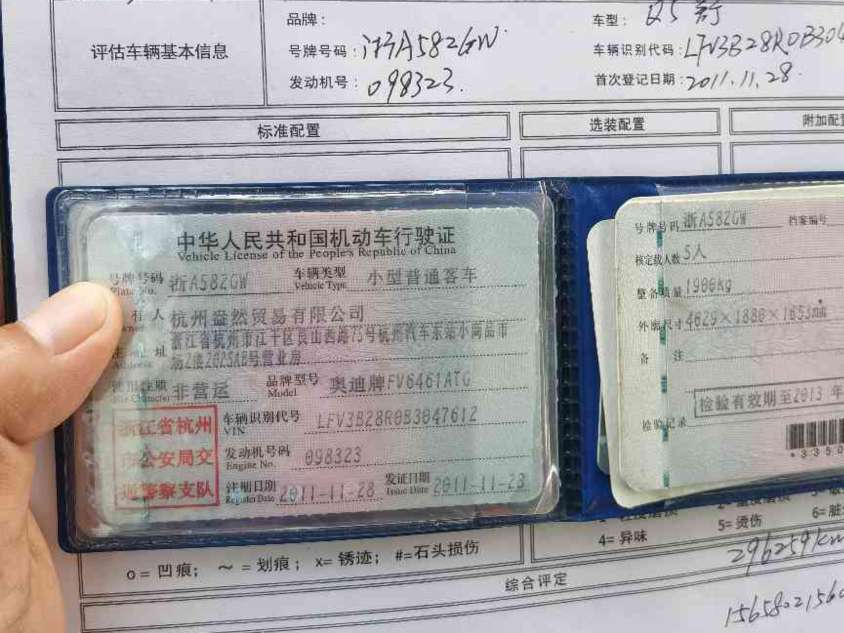 品牌： 车型： Q5
评估车辆基本信息 号牌号码：浙A582GW 车辆识别代码：LFV3B28R0B304
发动机号：098323. 首次登记日期：2011.11.28.
标准配置 选装配置 附加配
中华人民共和国机动车行驶证
Vehicle License of the People's Republic of China
号牌号码 浙A582GW 车辆类型 小型普通客车
Plate No. Vehicle Type
有人 杭州盎然贸易有限公司
Owner
浙江省杭州市江干区艮山西路75号杭州汽车东站小商品市
址 场2楼202SAB号营业房
使用性质 非营运 品牌型号 奥迪牌FV6461ATG
Use Character Model
浙江省杭州
市公安局交
通警察支队
车辆识别代号 LFV3B28R0B3047612
VIN
发动机号码 098323
Engine No.
注册日期 2011-11-28 发证日期
Register Date Issue Date
号牌号码 浙A582GW 档案编号
核定载人数 5人
整备质量 1900kg
外廓尺寸
备注
检验有效期至2013年
检验记录
*3350
4=异味 5=烫伤 6=脏
o= 凹痕； ～ = 划痕； x= 锈迹； #=石头损伤
296259km
综合评定
1565802156